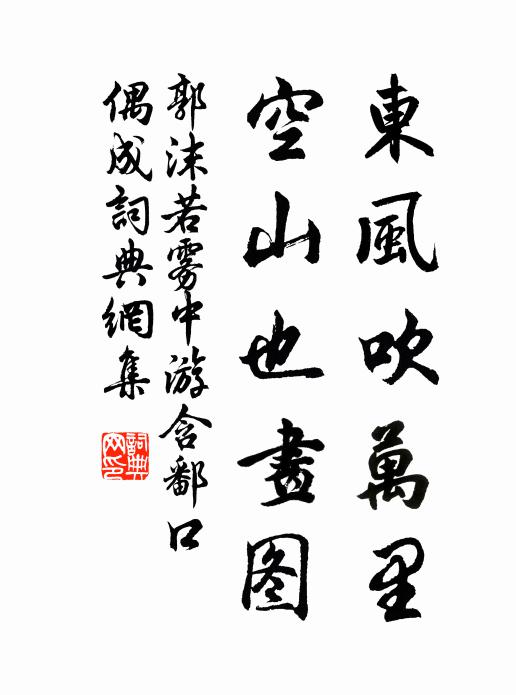 東風吹萬里
空山也畫图
郭沫若雾中游含鄱口
偶成詞典網集
詞典网印